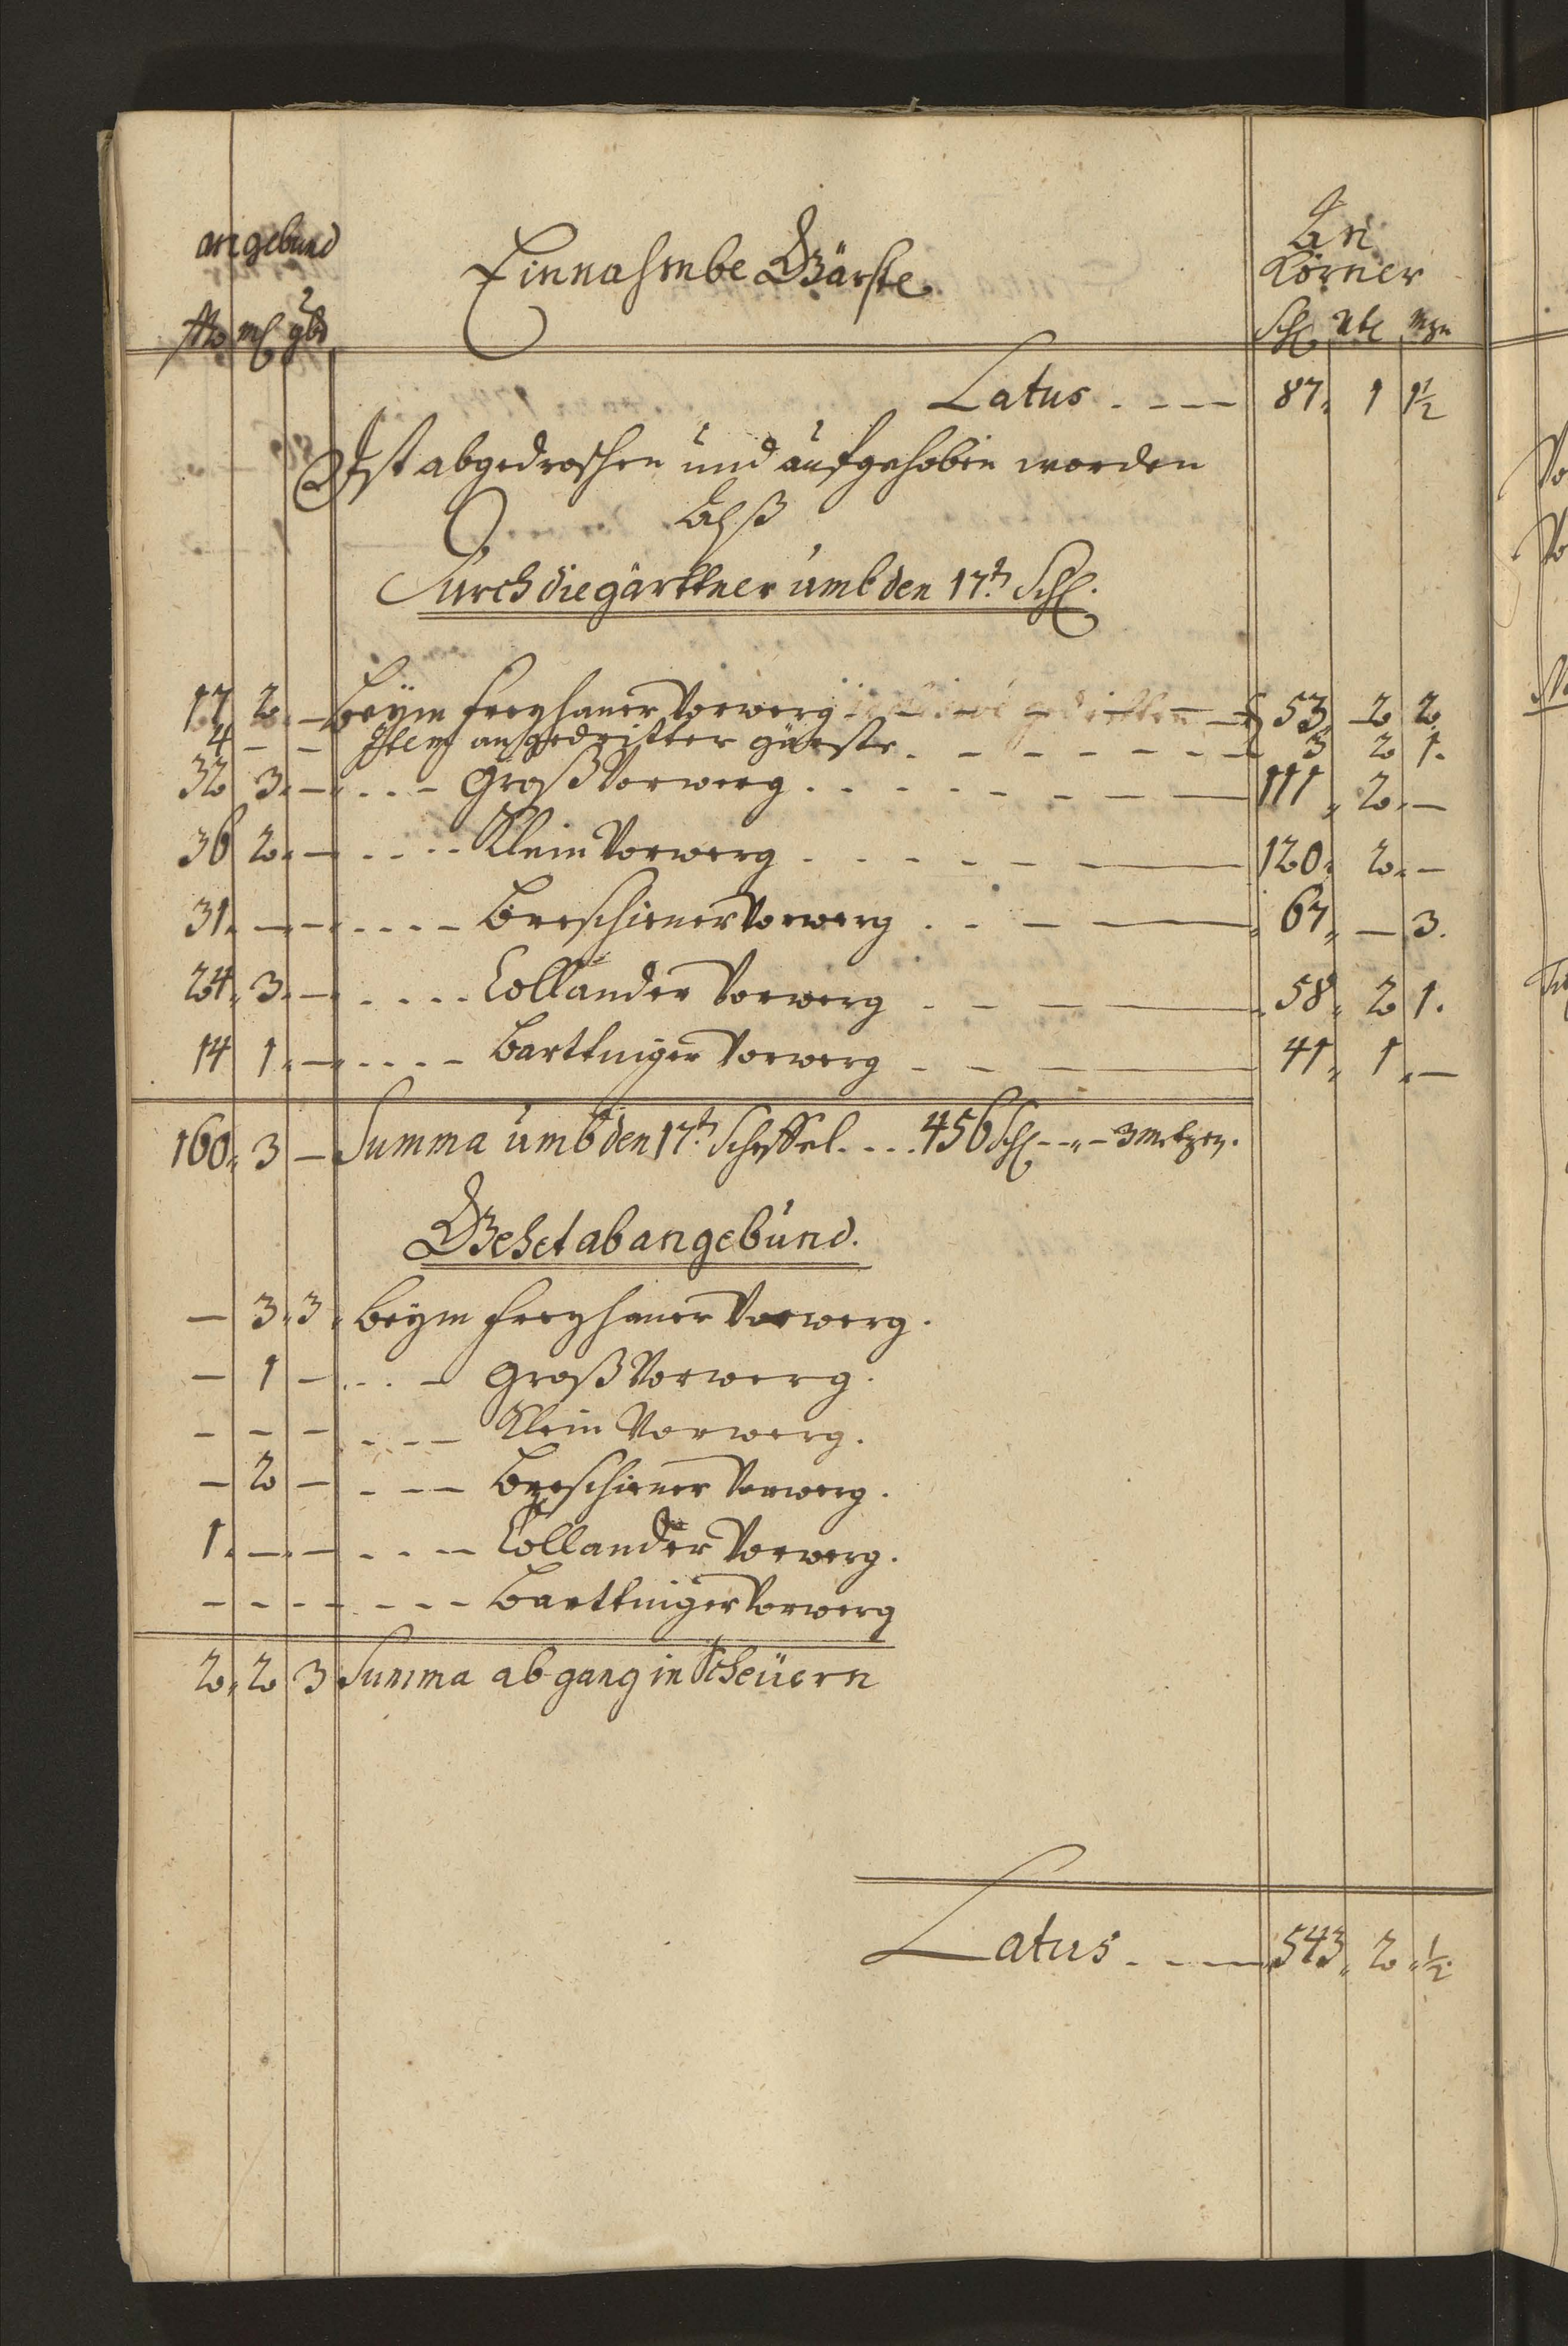 an gebund
Einnahmbe Gärste
An
Körner
ßo ml gbd
Schl Vtl Mzn
Latus . - - — 87 " 1 1½
Ist abgedroschen und aufgehoben worden
Alß
Durch die gärttner umb den 17.t Schl.
17 2. — Beym Freyhaner Vorwerg - - - - — 53 " 2 2.
4 — — Item ausgedrifter gärste . - - - - - 3 2 1.
32 3. — . . . - Groß Vorwerg . . . - - - — 111 " 2. —
36 2. — . . . . - Klein Vorwerg . . . - - — 120. 2. —
31. — — . . . - - Breschiner Vorwerg . . - — 67 " — 3.
24. 3. — . . . . Collander Vorwerg . - — 58 " 2 1.
14 1. — . . . - Barttniger Vorwerg - - — 41 " 1 " —
160. 3 — Summa umb den 17.t Scheffel . . . . 456 Schl - " - 3 Metzen.
Gehet ab an gebund.
— 3. 3. Beym Freyhaner Vorwerg.
— 1 — . . . - Groß Vorwerg.
- - - . - - Klein Vorwerg.
— 2 — . - - Breschiner Vorwerg.
1. — — . . - - Collander Vorwerg.
- - - - - - Barttniger Vorwerg
2. 2 3 Summa abgang in Scheüern
Latus . - - — 543 " 2 " ½